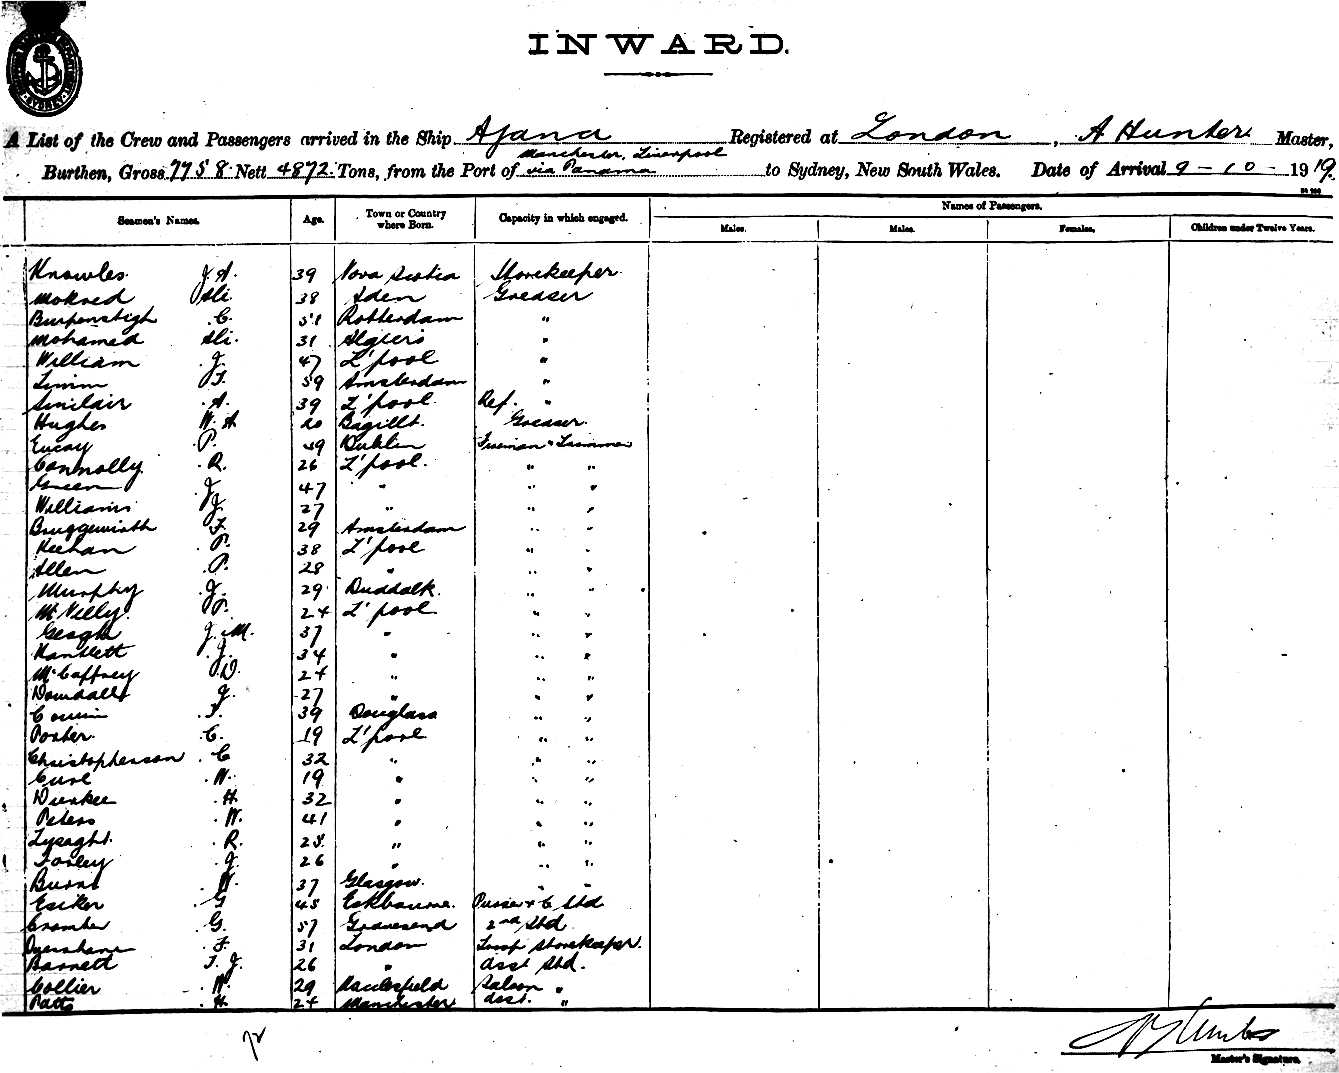 INWARD.
A List of the Crew and Passengers arrived in the Ship Ajana Registered at London, A Hunter Master,
Manchester, Liverpool
Burthen, Gross 7758 Nett 4872 Tons, from the Port of via Panama to Sydney, New South Wales. Date of Arrival 9 - 10 - 1919.
Names of Passengers.
Seamen's Names. Age. Town or Country where Born. Capacity in which engaged. Males. Males. Females. Children under Twelve Years.
Knowles J. A. 39 Nova Scotia Storekeeper
Ali. 38 Aden Greaser
C. 51 Rotterdam "
Mohamed Ali. 31 Algiers "
William J. 47 L'pool "
T. 59 Amsterdam "
Sinclair A. 39 L'pool. Ref. "
Hughes W. A 20 Bagillt. Greaser
P. 49 Dublin Fireman & Trimmer
Connolly R. 26 L'pool. " "
Green J. 47 " " "
Williams J. 27 " " "
Bruggewirth F. 29 Amsterdam " "
Keehan P. 38 L'pool " "
Allen P. 28 " " "
Murphy J. 29 Dundalk. " "
McNelly. P. 24 L'pool " "
J. M. 37 " " "
J. 34 " " "
McCaffrey D. 24 " " "
Dowdall J. 27 " " "
39 Douglass " "
Porter. C. 19 L'pool " "
Christopherson C 32 " " "
W. 19 " " "
Durkee H. 32 " " "
Peters W. 41 " " "
Lysaght. R. 28. " " "
J. 26 " " "
Burns W. 37 Glasgow. " "
G 45 Purser & C Std
G. 57 Gravesend 2nd Std
F. 31 London Storekeeper.
Barnett T. J. 26 " Asst Std.
Collier W. 29 Saloon "
Potts H. 24 Manchester Asst. "
Master's Signature.